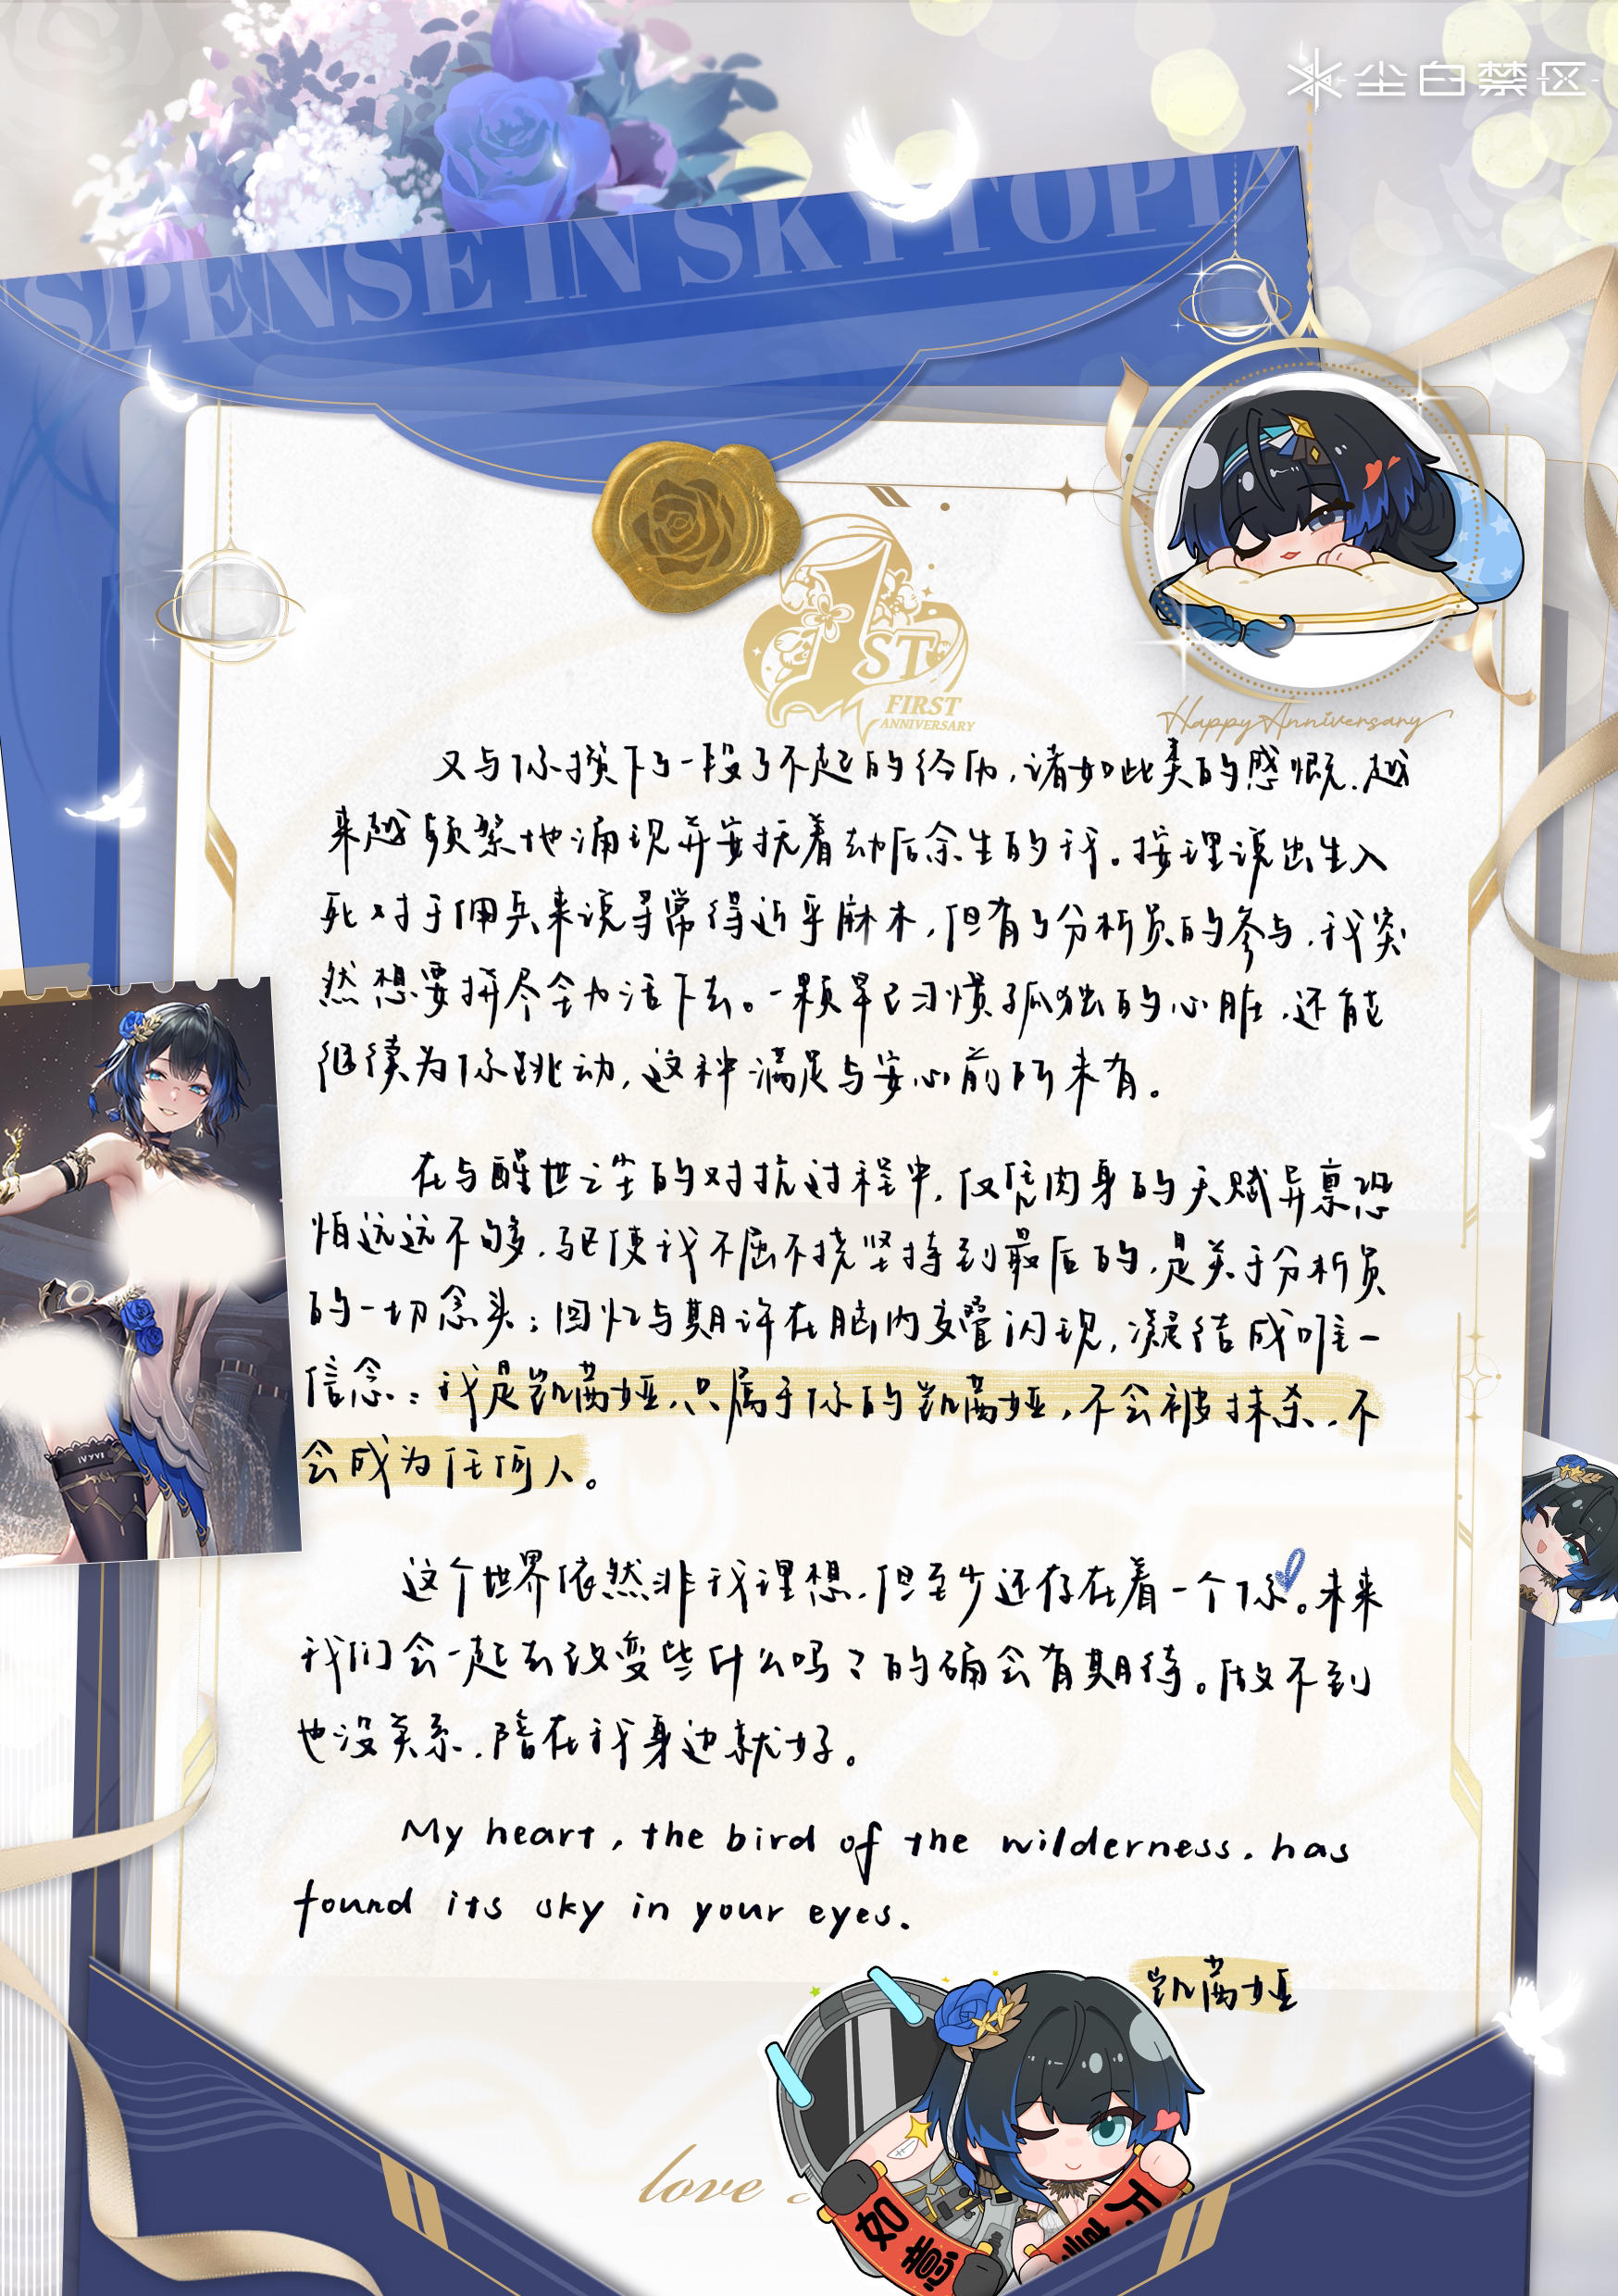 尘白禁区
SPENSE IN SKYTOPIA
1ST
FIRST
ANNIVERSARY
Happy Anniversary
又与你攒下了一段了不起的经历，诸如此类的感慨，越
来越频繁地涌现并安抚着劫后余生的我。按理说出生入
死对于佣兵来说寻常得近乎麻木，但有了分析员的参与，我突
然想要拼尽全力活下去。一颗早已习惯孤独的心脏，还能
继续为你跳动，这种满足与安心前所未有。
在与醒世之尘的对抗过程中，仅凭肉身的天赋异禀恐
怕远远不够，驱使我不屈不挠坚持到最后的，是关于分析员
的一切念头；回忆与期许在脑内交叠闪现，凝结成唯一
信念：我是凯茜娅，只属于你的凯茜娅，不会被抹杀，不
会成为任何人。
这个世界依然非我理想，但至少还存在着一个你。未来
我们会一起去改变些什么吗？的确会有期待。做不到
也没关系，陪在我身边就好。
My heart, the bird of the wilderness, has
found its sky in your eyes.
凯茜娅
love
如意